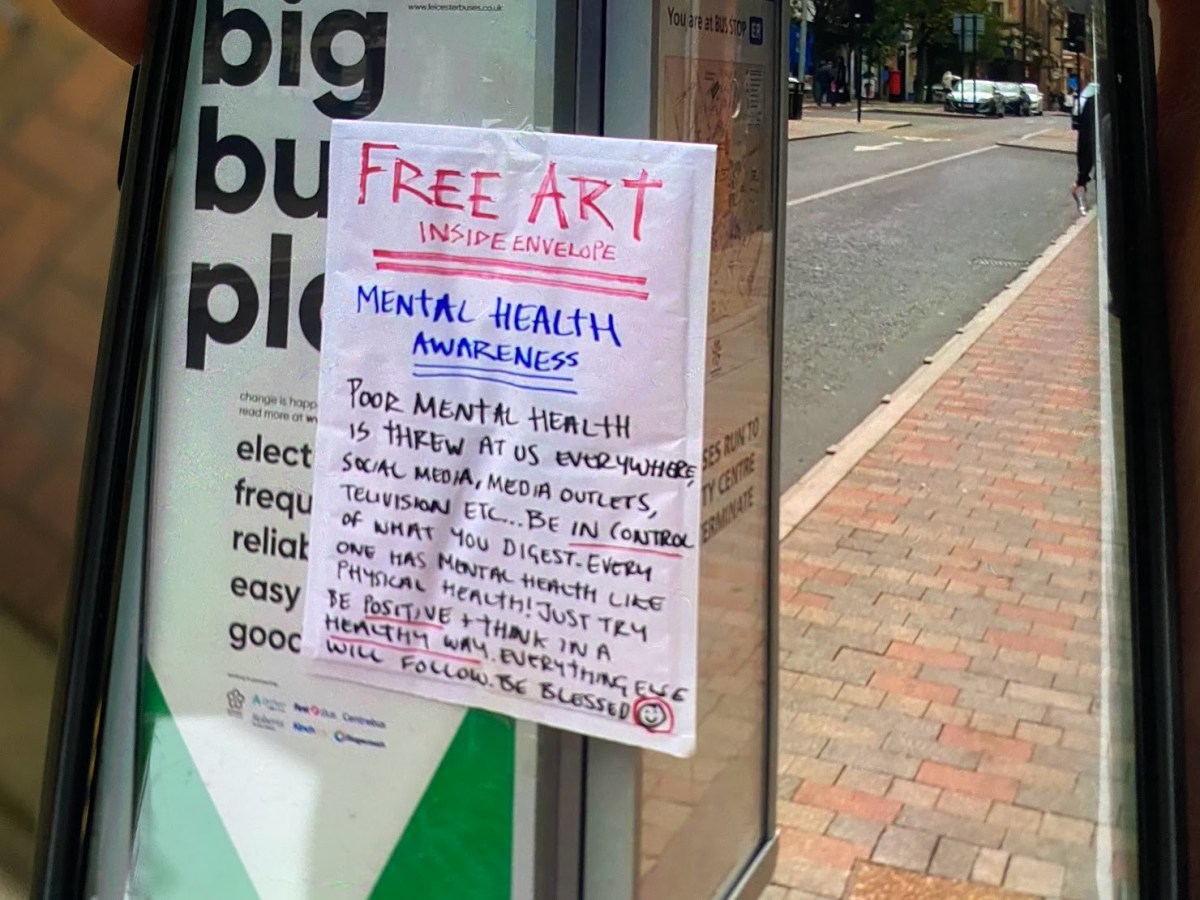 big
www.leicesterbuses.co.uk
You are at BUS STOP
bu
pl
change is happ
read more at
elect
frequ
reliab
easy
good
FREE ART
INSIDE ENVELOPE
MENTAL HEALTH
AWARENESS
POOR MENTAL HEALTH
IS THREW AT US EVERYWHERE,
SOCIAL MEDIA, MEDIA OUTLETS,
TELIVISION ETC... BE IN CONTROL
OF WHAT YOU DIGEST. EVERY
ONE HAS MENTAL HEALTH LIKE
PHYSICAL HEALTH! JUST TRY
BE POSITIVE + THINK IN A
HEALTHY WAY. EVERYTHING ELSE
WILL FOLLOW. BE BLESSED
SES RUN TO
TY CENTRE
ERMINATE
Centrebus